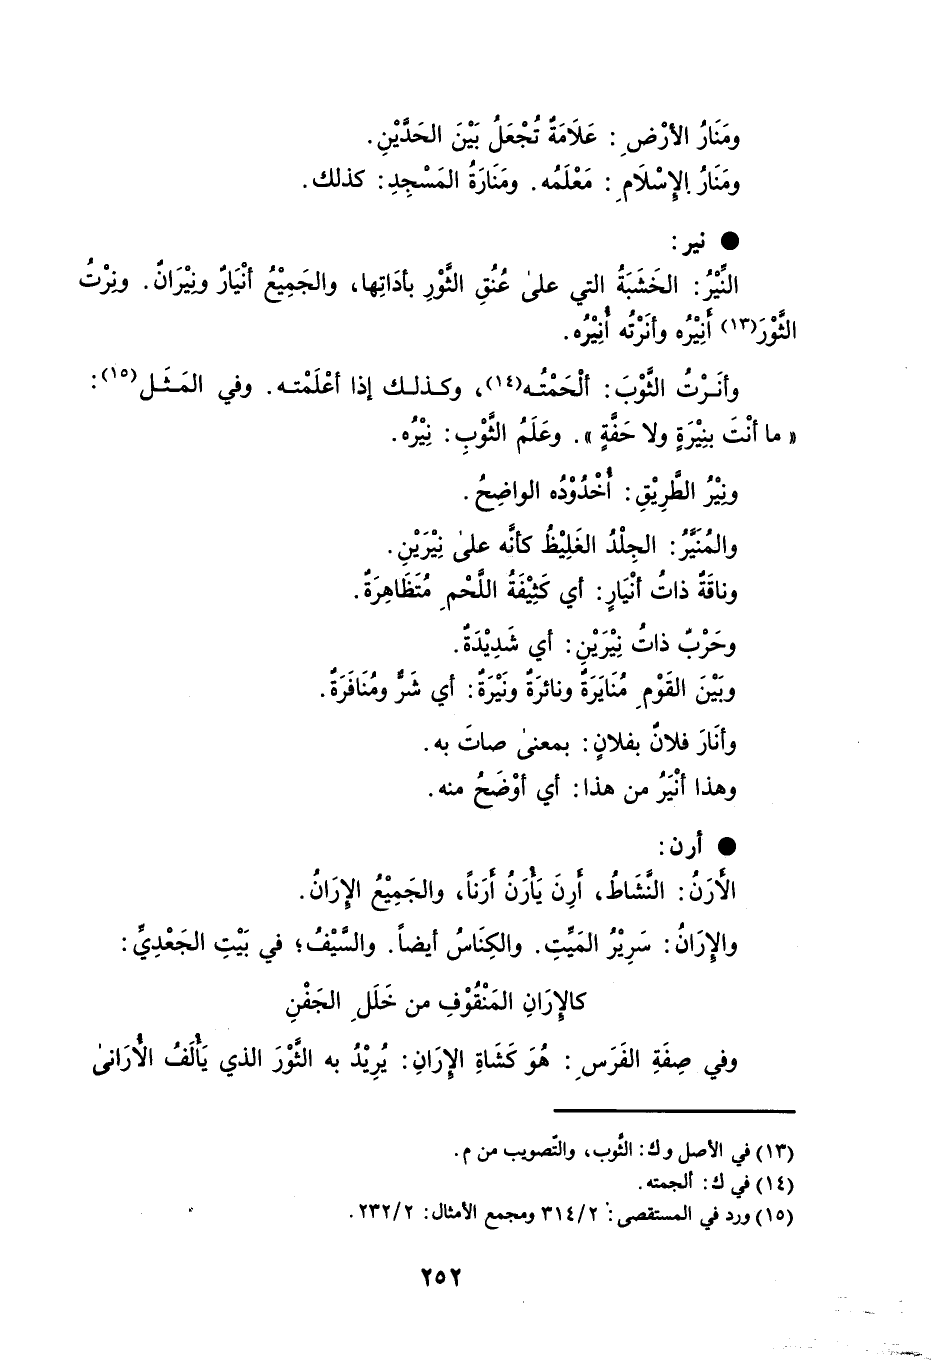 ومَنَارُ الأرْضِ: عَلَامَةٌ تُجْعَلُ بَيْنَ الحَدَّيْنِ.
ومَنَارُ الإِسْلَامِ: مَعْلَمُه. ومَنَارَةُ المَسْجِدِ: كذلك.
● نير:
النِّيْرُ: الخَشَبَةُ التي علىٰ عُنُقِ الثَّوْرِ بأدَاتِها، والجَمِيْعُ أنْيَارٌ ونِيْرَانٌ. ونِرْتُ
الثَّوْرَ(١٣) أَنِيْرُه وأنَرْتُه أُنِيْرُه.
وأنَرْتُ الثَّوْبَ: ألْحَمْتُه(١٤)، وكذلك إذا أعْلَمْته. وفي المَثَل(١٥):
« ما أنْتَ بنِيْرَةٍ ولا حَفَّةٍ ». وعَلَمُ الثَّوْبِ: نِيْرُه.
ونِيْرُ الطَّرِيْقِ: أُخْدُوْدُه الواضِحُ.
والمُنَيَّرُ: الجِلْدُ الغَلِيْظُ كأنَّه علىٰ نِيْرَيْنِ.
وناقَةٌ ذاتُ أنْيَارٍ: أي كَثِيْفَةُ اللَّحْمِ مُتَظَاهِرَةٌ.
وحَرْبٌ ذاتُ نِيْرَيْنِ: أي شَدِيْدَةٌ.
وبَيْنَ القَوْمِ مُنَايَرَةٌ ونائرَةٌ ونَيْرَةٌ: أي شَرٌّ ومُنَافَرَةٌ.
وأنَارَ فلانٌ بفلانٍ: بمعنىٰ صاتَ به.
وهذا أنْيَرُ من هذا: أي أوْضَحُ منه.
● أرن:
الأَرَنُ: النَّشَاطُ، أَرِنَ يَأْرَنُ أَرَناً، والجَمِيْعُ الإِرَانُ.
والإِرَانُ: سَرِيْرُ المَيِّتِ. والكِنَاسُ أيضاً. والسَّيْفُ؛ في بَيْتِ الجَعْدِيِّ:
كالإِرَانِ المَنْقُوْفِ من خَلَلِ الجَفْنِ
وفي صِفَةِ الفَرَسِ: هُوَ كَشَاةِ الإِرَانِ: يُرِيْدُ به الثَّوْرَ الذي يَأْلَفُ الأُرَانىٰ
(١٣) في الأصل وك: الثَّوب، والتّصويب من م.
(١٤) في ك: ألجمته.
(١٥) ورد في المستقصى: ٣١٤/٢ ومجمع الأمثال: ٢٣٢/٢.
٢٥٢